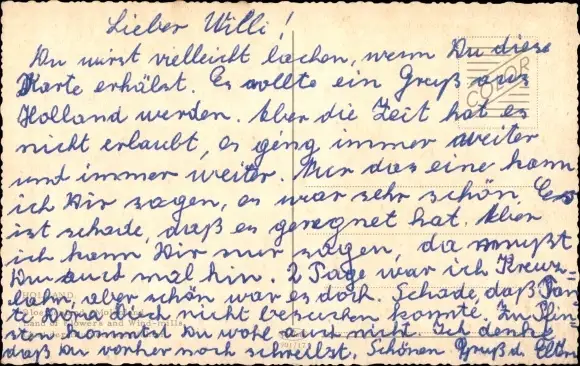 Lieber Willi!
Du wirst vielleicht lachen, wenn Du diese
Karte erhälst. Es sollte ein Gruß aus
Holland werden. Aber die Zeit hat es
nicht erlaubt, es ging immer weiter
und immer weiter. Nur das eine kann
ich Dir sagen, es war sehr schön. Es
ist schade, daß es geregnet hat. Aber
ich kann Dir nur sagen, da mußt
Du auch mal hin. 2 Tage war ich
lahm aber schön war es doch. Schade, daß Tan=
te Dora Dich nicht besuchen konnte. Zu Pfin=
sten kommst Du wohl auch nicht. Ich denke,
daß Du vorher noch schreibst. Schönen Gruß d. Eltern
COLOR
HOLLAND
Land of Flowers and Wind-mills